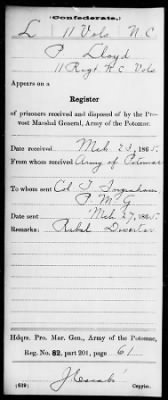 (Confederate.)
L 11 Vols N.C.
P Lloyd
11 Regt N.C. Vols
Appears on a
Register
of prisoners received and disposed of by the Pro-
vost Marshal General, Army of the Potomac.
Date received Mch 23, 1865.
From whom received Army of Potomac
To whom sent Col T Ingraham
P.M.G
Date sent Mch 27, 1865.
Remarks: Rebel Deserter
Hdqrs. Pro. Mar. Gen., Army of the Potomac,
Reg. No. 82, part 201, page 61
(639) Copyist.